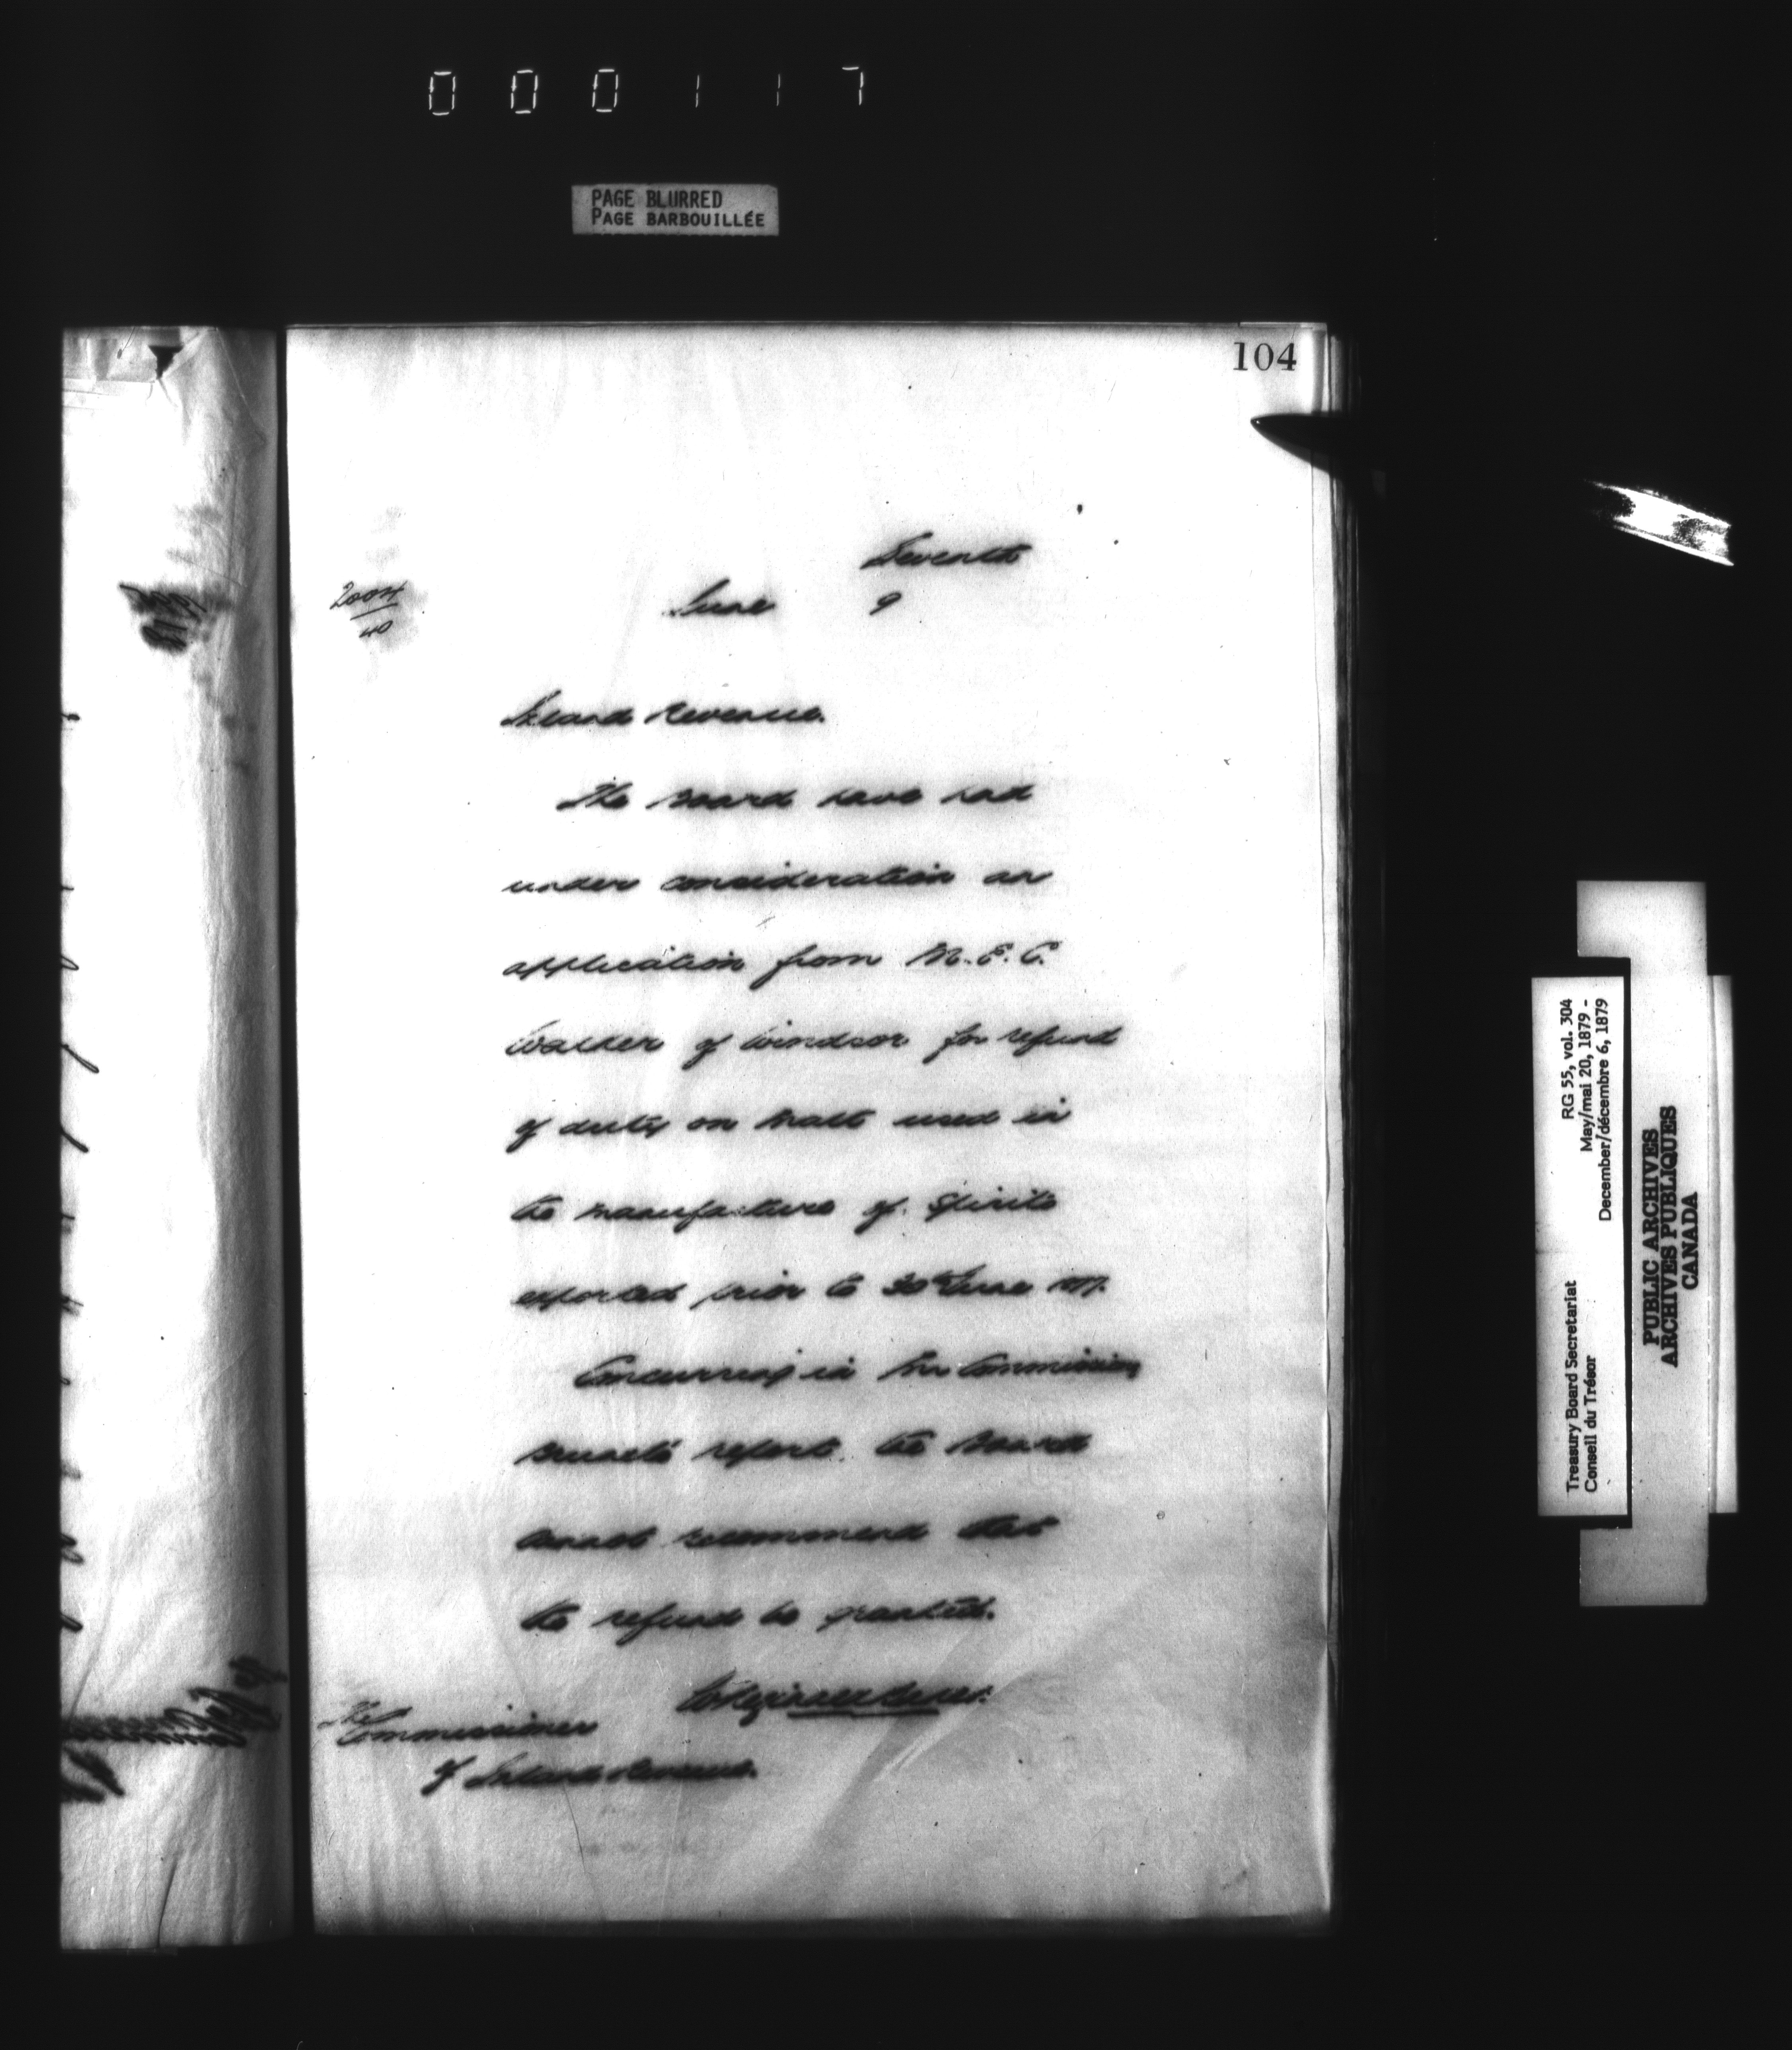 000117
PAGE BLURRED
PAGE BARBOUILLÉE
104
Seventh
June 9
2004
40
Inland Revenue.
The Board have had
under consideration an
application from
Walker of Windsor for refund
of duty on Malt used in
the manufacture of Spirits
exported prior to 30th June 1877.
Concurring in the Commissioner
report the Board
recommend that
the refund be granted.
The
Commissioner
of Inland Revenue.
RG 55, vol. 304
May/mai 20, 1879 -
December/décembre 6, 1879
Treasury Board Secretariat
Conseil du Trésor
PUBLIC ARCHIVES
ARCHIVES PUBLIQUES
CANADA